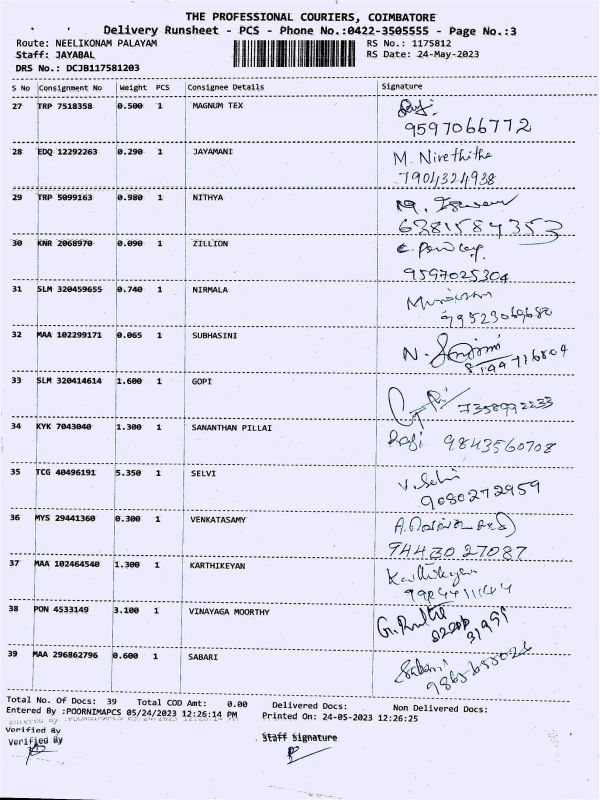 THE PROFESSIONAL COURIERS, COIMBATORE
Delivery Runsheet - PCS - Phone No.:0422-3505555 - Page No.:3
Route: NEELIKONAM PALAYAM RS No.: 1175812
Staff: JAYABAL RS Date: 24-May-2023
DRS No.: DCJB117581203
S No Consignment No Weight PCS Consignee Details Signature
27 TRP 7518358 0.500 1 MAGNUM TEX
9597066772
28 EDQ 12292263 0.290 1 JAYAMANI M. Nivethitha
7904324938
29 TRP 5099163 0.980 1 NITHYA
6381584353
30 KNR 2068970 0.090 1 ZILLION
9597025304
31 SLM 320459655 0.740 1 NIRMALA
99523069680
32 MAA 102299171 0.065 1 SUBHASINI N.
33 SLM 320414614 1.600 1 GOPI
7358992233
34 KYK 7043040 1.300 1 SANANTHAN PILLAI Raji 9843560708
35 TCG 40496191 5.350 1 SELVI V. Selvi
9080272959
36 MYS 29441360 0.300 1 VENKATASAMY
94430 27087
37 MAA 102464540 1.300 1 KARTHIKEYAN Karthikeyan
38 PON 4533149 3.100 1 VINAYAGA MOORTHY
39 MAA 296862796 0.600 1 SABARI Sabari
Total No. Of Docs: 39 Total COD Amt: 0.00 Delivered Docs: Non Delivered Docs:
Entered By :POORNIMAPCS 05/24/2023 12:26:14 PM Printed On: 24-05-2023 12:26:25
Verified By
Verified By Staff Signature